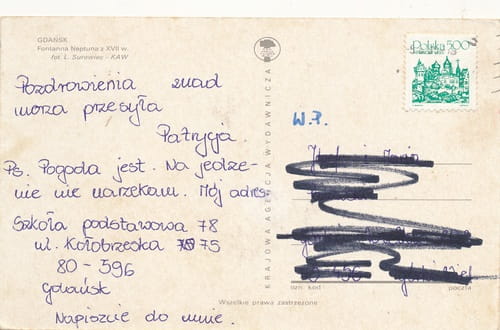 GDAŃSK
Fontanna Neptuna z XVII w.
fot. L. Surowiec - KAW
Pozdrowienia znad
morza przesyła
Patrycja.
Ps. Pogoda jest. Na jedze-
nie nie narzekam. Mój adres
Szkoła podstawowa 78
ul. Kołobrzeska 75
80-596
Gdańsk
Napiszcie do mnie.
KRAJOWA AGENCJA WYDAWNICZA
Polska 500
W.P.
kod
poczta
Wszelkie prawa zastrzeżone